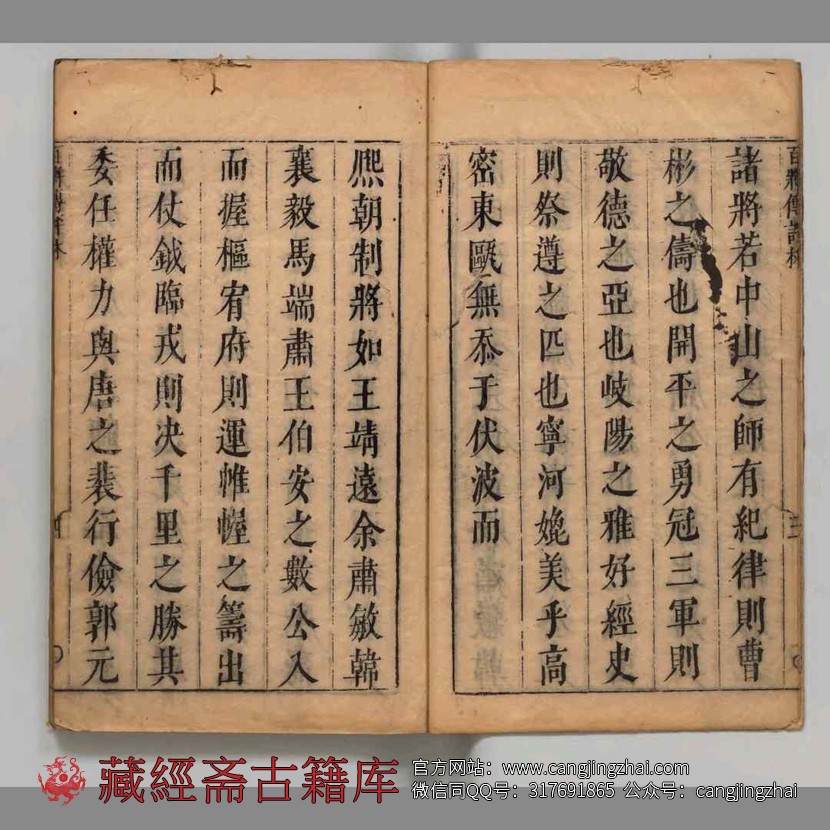 百將傳評林
諸將若中山之師有紀律則曹
彬之儔也開平之勇冠三軍則
敬德之亞也岐陽之雅好經史
則祭遵之匹也寧河媲美乎高
密東甌無忝于伏波而
熈朝制將如王靖遠余肅敏韓
襄毅馬端肅王伯安之數公入
而握樞宥府則運帷幄之籌出
而仗鉞臨戎則决千里之勝其
委任權力與唐之裴行儉郭元
百將傳評林
藏經斋古籍库
官方网站：www.cangjingzhai.com
微信同QQ号：317691865 公众号：cangjingzhai